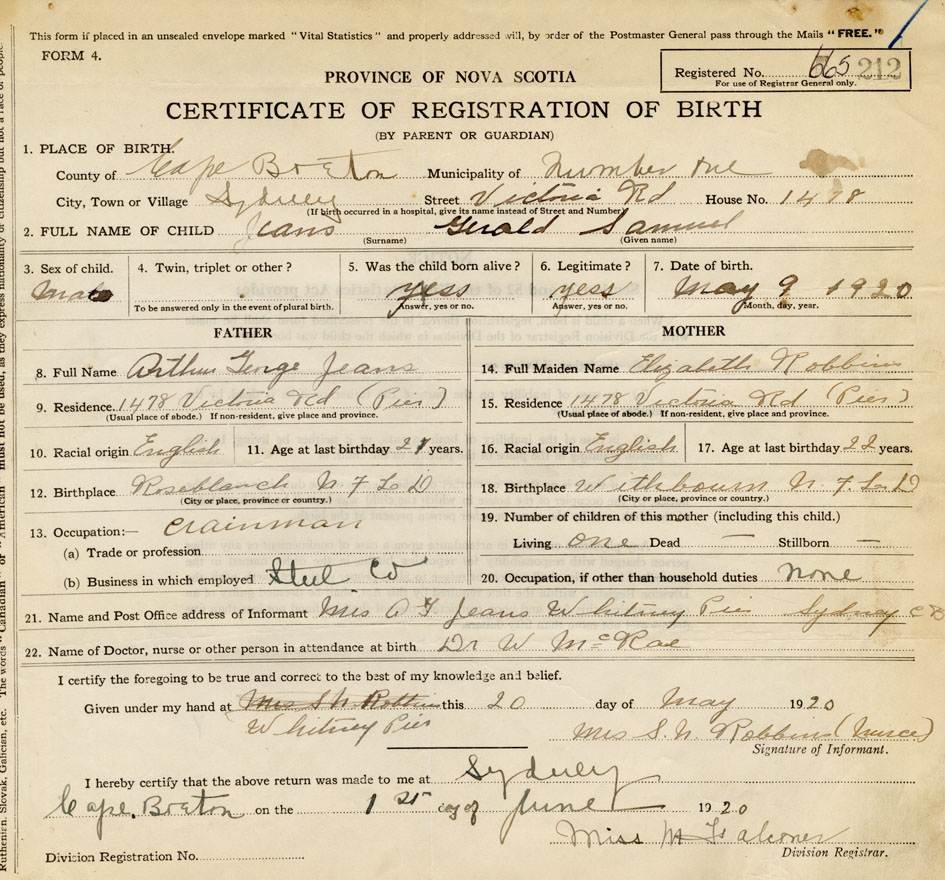 This form if placed in an unsealed envelope marked "Vital Statistics" and properly addressed will, by order of the Postmaster General pass through the Mails "FREE."
FORM 4.
PROVINCE OF NOVA SCOTIA
Registered No. 665 212
For use of Registrar General only.
CERTIFICATE OF REGISTRATION OF BIRTH
(BY PARENT OR GUARDIAN)
1. PLACE OF BIRTH:
County of Cape Breton Municipality of Number One
City, Town or Village Sydney Street Victoria Rd House No. 1478
(If birth occurred in a hospital, give its name instead of Street and Number)
2. FULL NAME OF CHILD Jeans Gerald Samuel
(Surname) (Given name)
3. Sex of child. 4. Twin, triplet or other? 5. Was the child born alive? 6. Legitimate? 7. Date of birth.
Male yess yess May 9 1920
To be answered only in the event of plural birth. Answer, yes or no. Answer, yes or no. Month, day, year.
FATHER MOTHER
8. Full Name Arthur Jeans 14. Full Maiden Name Elizabeth Robbins
9. Residence. 1478 Victoria Rd (Pier) 15. Residence 1478 Victoria Rd (Pier)
(Usual place of abode.) If non-resident, give place and province. (Usual place of abode.) If non-resident, give place and province.
10. Racial origin English 11. Age at last birthday years. 16. Racial origin English 17. Age at last birthday 22 years.
12. Birthplace Roseblanch N. F. L. D 18. Birthplace Withbourn N. F. L. D
(City or place, province or country.) (City or place, province or country.)
13. Occupation:— Crainman 19. Number of children of this mother (including this child.)
(a) Trade or profession Living one Dead — Stillborn —
(b) Business in which employed Steel Co 20. Occupation, if other than household duties none
21. Name and Post Office address of Informant Mrs A Jeans Whitney Pier Sydney C B
22. Name of Doctor, nurse or other person in attendance at birth Dr W McRae
I certify the foregoing to be true and correct to the best of my knowledge and belief.
Given under my hand at Mrs S. N. Robbins this 20 day of May 1920
Whitney Pier Mrs S. N. Robbins (Nurse)
Signature of Informant.
I hereby certify that the above return was made to me at Sydney
Cape Breton on the 1st day of June 1920
Miss M Falconer
Division Registration No. Division Registrar.